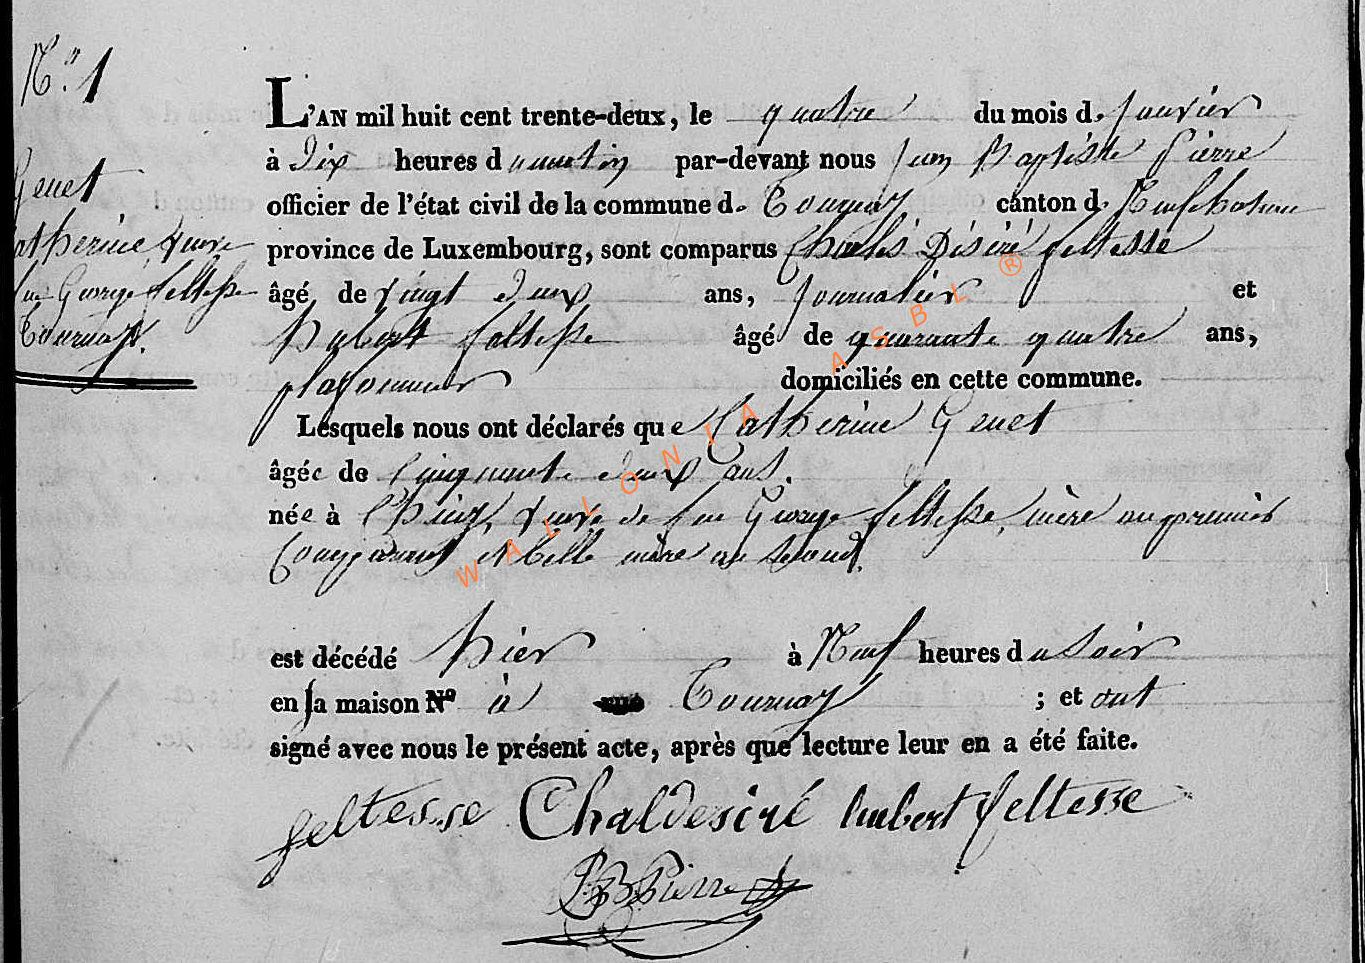 N.° 1
Genet
atherine, veuve
feu George feltesse
Tournay.
L'AN mil huit cent trente-deux, le quatre du mois d. Janvier
à Dix heures du matin par-devant nous Jean Baptiste Pierre
officier de l'état civil de la commune d. Tournay canton d. Neufchateau
province de Luxembourg, sont comparus Charles Désiré feltesse
âgé de vingt deux ans, journalier et
hubert feltesse âgé de quarante quatre ans,
plafonneur domiciliés en cette commune.
Lesquels nous ont déclarés que Catherine Genet
âgée de Cinquante deux ans.
née à veuve de feu George feltesse, mère au premier
Comparant et belle mère au second.
est décédé hier à Neuf heures du soir
en sa maison N° à Tournay ; et ont
signé avec nous le présent acte, après que lecture leur en a été faite.
feltesse Chaldesiré hubert feltesse
JB Pierre
WALLONIA ASBL ®